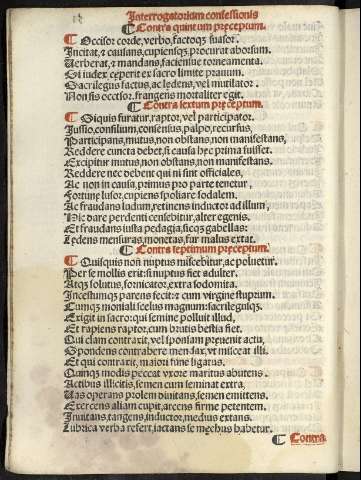 Interrogatorium confessionis
Contra quintum preceptum.
Occisor corde, verbo, factoqʒ suasor.
Incitat, & causans, cupiensqʒ, procurat aborsum.
Verberat, & mandans, faciensue tormenta.
Si iudex ceperit ex sacro limite
Sacrilegus factus, ac ledens, vel mutilator.
Non sis occisor, frangens mortaliter egit.
Contra sextum preceptum.
Siquis furatur, raptor, vel participator.
Iussio, consilium, consensus, palpo, recursus,
Participans, mutus, non obstans, non manifestans,
Reddere cuncta debet, si causa hec prima fuisset.
Excipitur mutus, non obstans, non manifestans.
Reddere nec debent qui ni sint officiales,
Ac non in causa, primus pro parte tenetur,
Fortune lusor, cupiens spoliare sodalem.
Ac fraudans ludum, retinens inductor ad illum,
Hic dare perdenti censebitur, alter egenis.
Et fraudans iusta pedagia, sicqʒ gabellas:
Ledens mensuras, monetas, fur malus extat.
Contra septimum preceptum.
Quisquis non nuptus miscebitur, ac polluetur.
Per se mollis erit: si nuptus fiet adulter.
Atqʒ solutus, fornicator, extra sodomita.
Incestumqʒ parens fecit: & cum virgine stuprum.
Cumqʒ moniali scelus magnum: sacrilegumqʒ.
Exigit in sacro: qui semine polluit illud,
Et rapiens raptor, cum brutis bestia fiet.
Qui clam contraxit, vel sponsam preuenit actu,
Spondens contrahere mendax, vt misceat illi.
Et qui contraxit, maiori fune ligatus.
Cumqʒ modis peccat vxore maritus abutens.
Actibus illicitis, semen cum seminat extra,
Uas operans prolem diuitans, semen emittens.
Exercens aliam cupit, accens firme petentem.
Inuitans, tangens, inductor, medius extans.
Lubrica verba refert, iactans se mechus habetur.
Contra